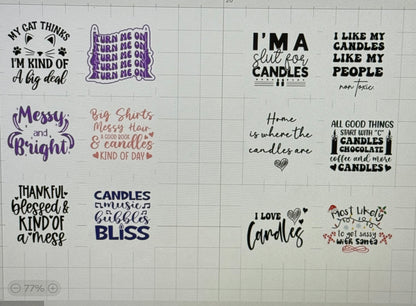 20
MY CAT THINKS
I'M KIND OF
A big deal
TURN ME ON
TURN ME ON
TURN ME ON
TURN ME ON
TURN ME ON
I'M A
slut for
CANDLES
I LIKE MY
CANDLES
LIKE MY
PEOPLE
non toxic
Messy
and
Bright
Big Shirts
Messy Hair
A GOOD BOOK
& candles
KIND OF DAY
Home
is where the
candles are
ALL GOOD THINGS
START WITH "C"
CANDLES
CHOCOLATE
coffee and more
CANDLES
THANKFUL
blessed &
KIND OF
a mess
CANDLES
music
bubbles
BLISS
I LOVE
Candles
Most Likely
to get sassy
with Santa
77%